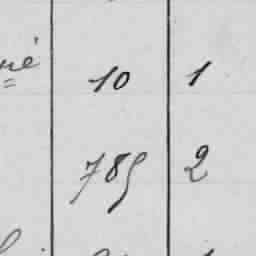 né 10 1
785 2